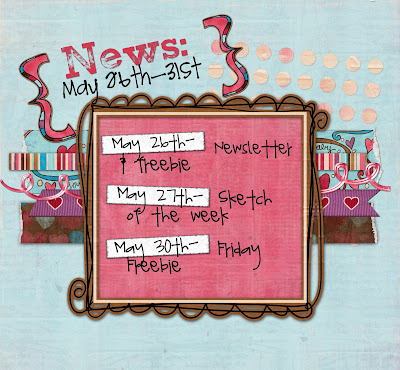 News:
May 26th-31st
May 26th- Newsletter
& freebie
May 27th- Sketch
of the week
May 30th- Friday
Freebie